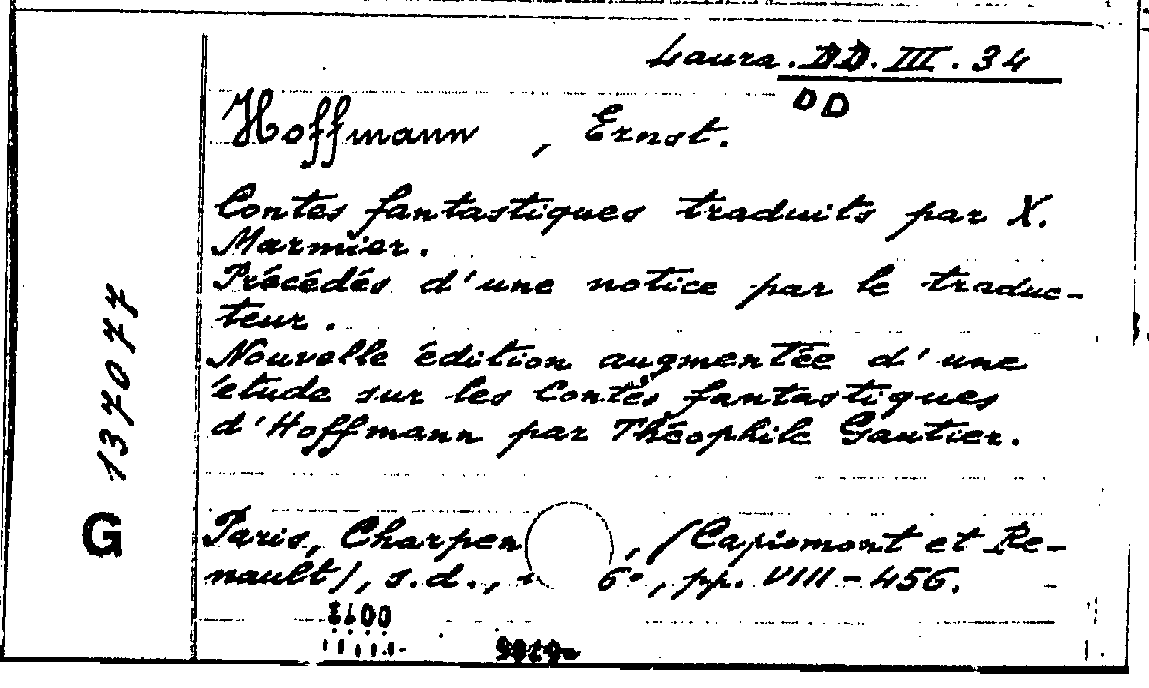 Laura. DD. III. 34
DD
Hoffmann, Ernst.
Contes fantastiques traduits par X.
Marmier.
Précédés d'une notice par le traduc-
teur.
Nouvelle édition augmentée d'une
étude sur les Contes fantastiques
d'Hoffmann par Théophile Gautier.
G 137077
Paris, Charpen , (Capiomont et Re-
nault), s.d., 6°, pp. VIII-456.